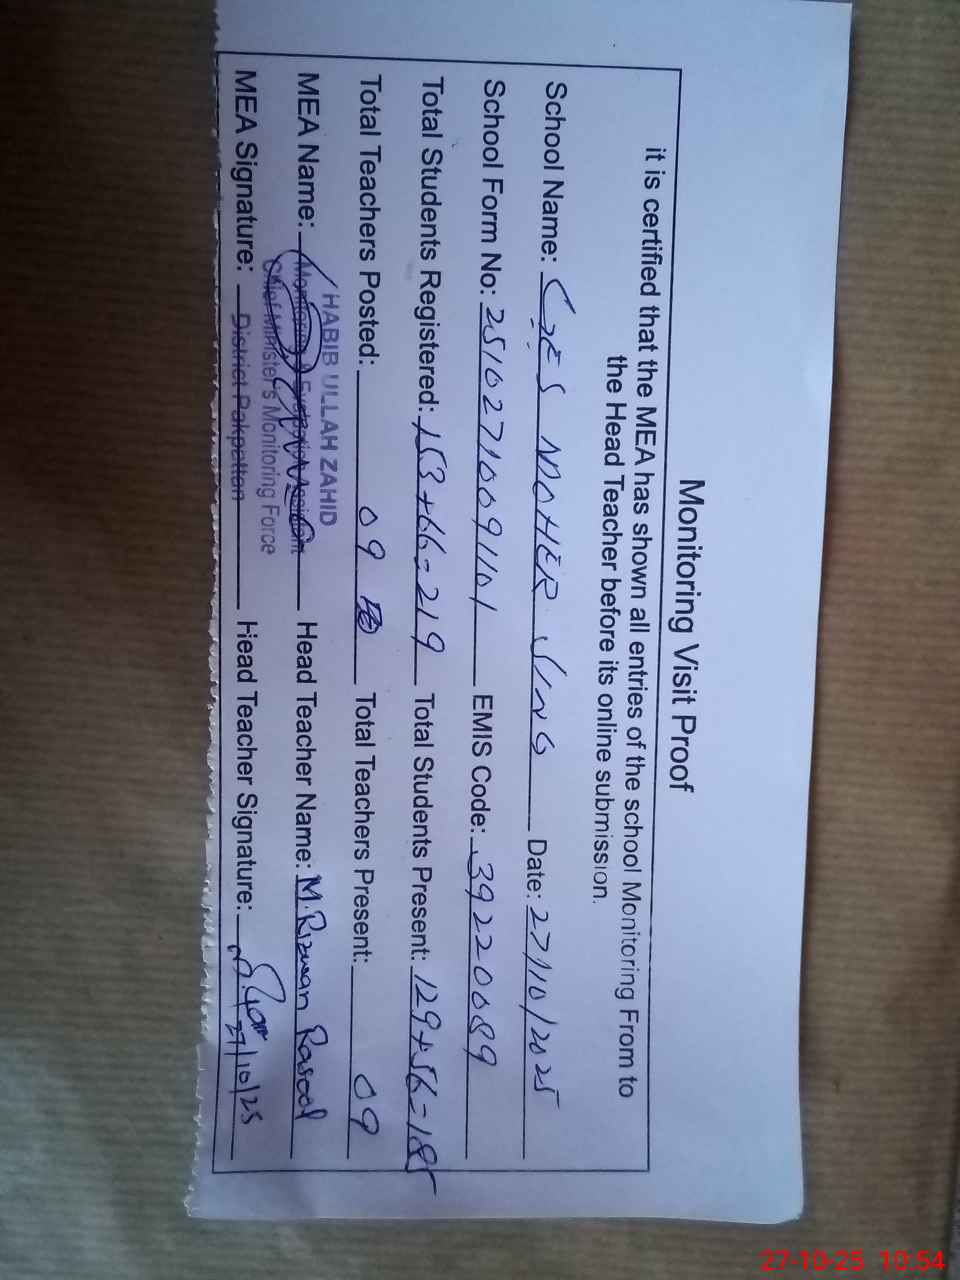 Monitoring Visit Proof
it is certified that the MEA has shown all entries of the school Monitoring From to
the Head Teacher before its online submission.
School Name: GES NOHER SING Date: 27/10/2025
School Form No: 25102710091101 EMIS Code: 39220089
Total Students Registered: 153+66=219 Total Students Present: 129+56=185
Total Teachers Posted: 09 Total Teachers Present: 09
HABIB ULLAH ZAHID
MEA Name: Monitoring & Evaluation Assistant Head Teacher Name: M. Rizwan Rasool
Chief Minister's Monitoring Force
MEA Signature: District Pakpattan Head Teacher Signature: 27/10/25
27-10-25 10:54